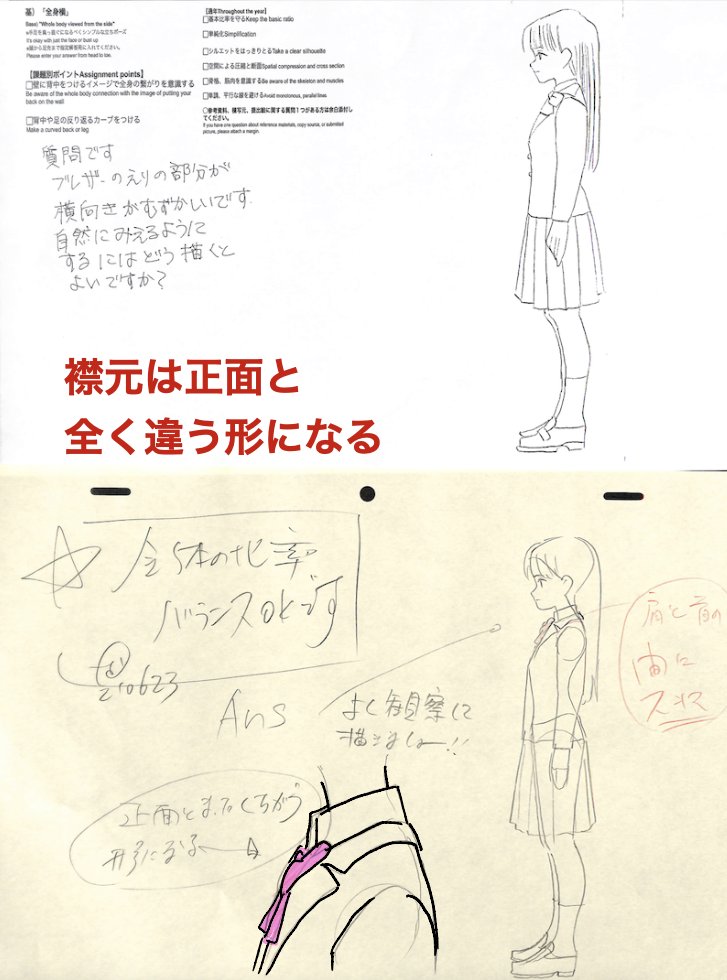 基）「全身横」
Base) "Whole body viewed from the side"
※手足を真っ直ぐになるべくシンプルな立ちポーズ
It's okay with just the face or bust up
※頭から足先まで指定横枠用に入れてください。
Please enter your answer from head to toe.
【課題別ポイントAssignment points】
□壁に背中をつけるイメージで全身の繋がりを意識する
Be aware of the whole body connection with the image of putting your
back on the wall
□背中や足の反り返るカーブをつける
Make a curved back or leg
【通年Throughout the year】
□基本比率を守るKeep the basic ratio
□単純化Simplification
□シルエットをはっきりとるTake a clear silhouette
□空間による圧縮と断面Spatial compression and cross section
□骨格、筋肉を意識するBe aware of the skeleton and muscles
□単調、平行な線を避けるAvoid monotonous, parallel lines
○参考資料、模写元、提出絵に関する質問１つがある方は余白添付し
てください。
If you have one question about reference materials, copy source, or submitted
picture, please attach a margin.
質問です
ブレザーのえりの部分が
横向きがむずかしいです。
自然にみえるように
するにはどう描くと
よいですか？
襟元は正面と
全く違う形になる
全体の比率
バランスOKです
210623
Ans
よく観察して
描きましょー!!
正面とまったくちがう
形になる
肩と首の
間に